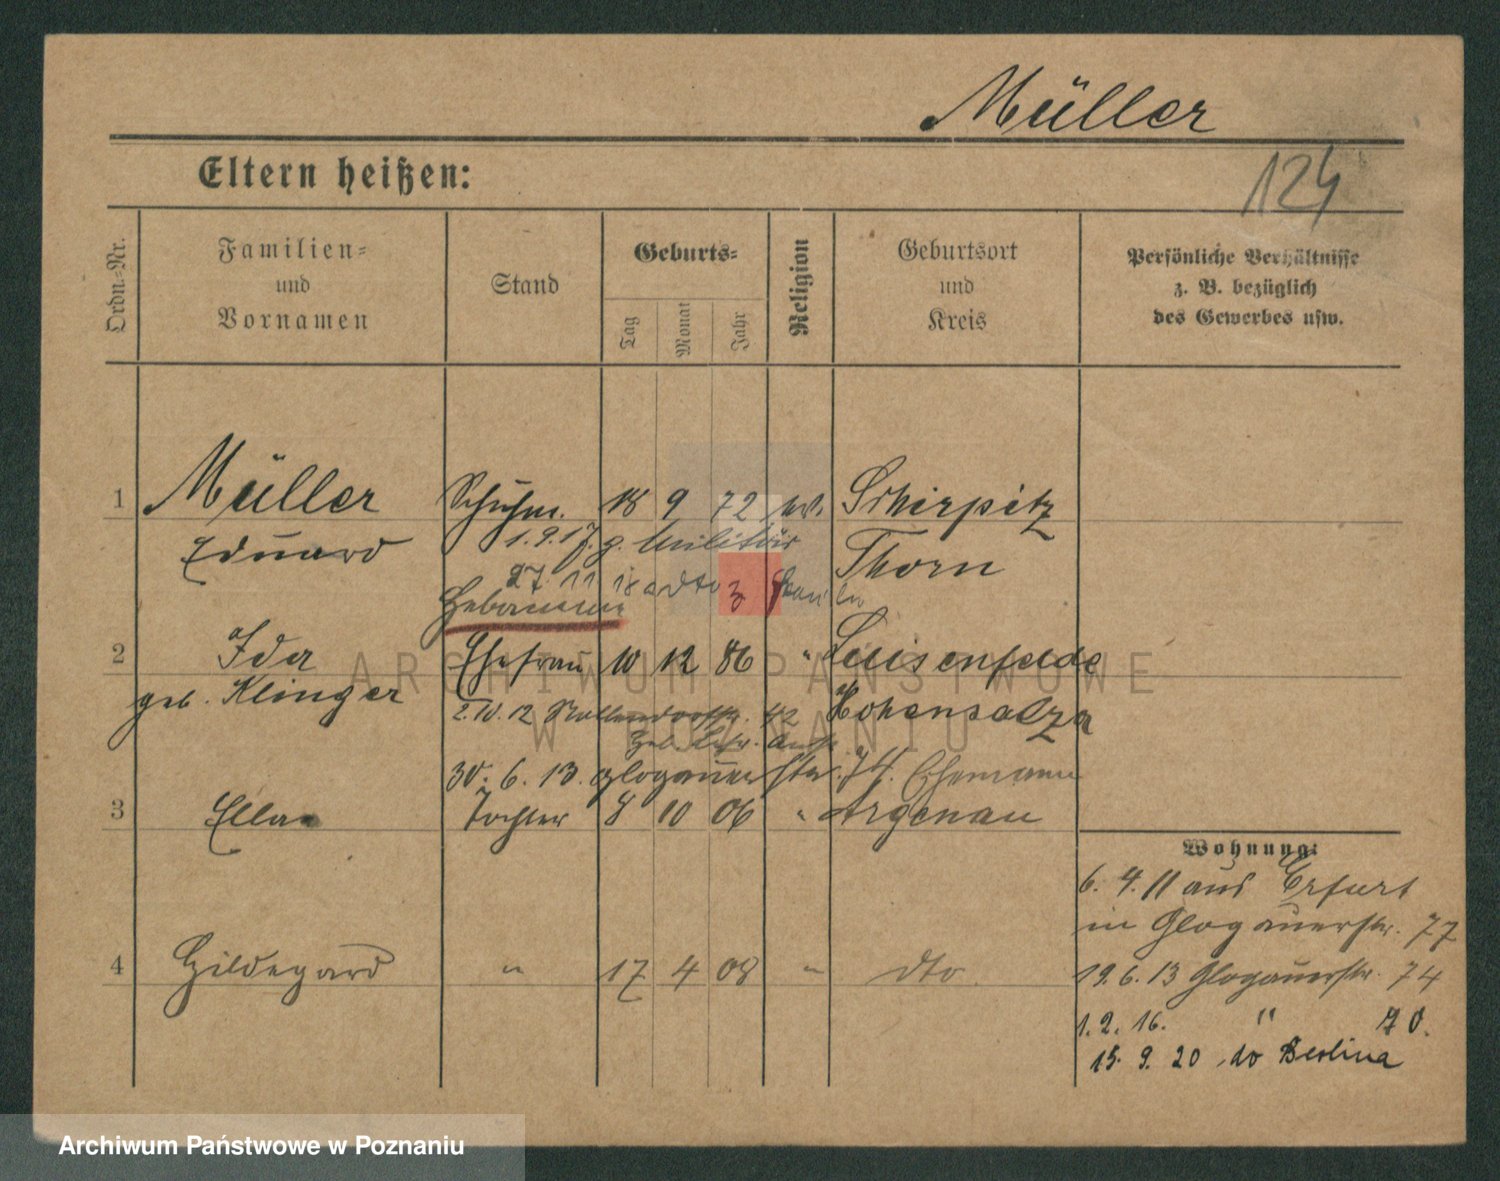 Müller
124
Eltern heißen:
Ordn.-Nr.
Familien-
und
Vornamen
Stand
Geburts-
Tag
Monat
Jahr
Religion
Geburtsort
und
Kreis
Persönliche Verhältnisse
z. B. bezüglich
des Gewerbes usw.
1 Müller Schuhm. 18 9 72 ev. Schirpitz
Eduard 1.9.17. z. Militär Thorn
27. 11 18 dto
Hebamme
2 Ida Ehefrau 10 12 86 " Luisenfelde
geb. Klinger Hohensalza
2.10.12 Nollendorfstr. 42
30. 6. 13. Glogauerstr. 74. Ehemann
3 Ella Tochter 8 10 06 " Argenau
4 Hildegard " 17 4 08 " dto
Wohnung:
6. 4. 11 aus Erfurt
in Glogauerstr. 77
19. 6. 13 Glogauerstr. 74
1. 2. 16. " 70.
15. 9. 20 do Berlina
ARCHIWUM PAŃSTWOWE
W POZNANIU
Archiwum Państwowe w Poznaniu